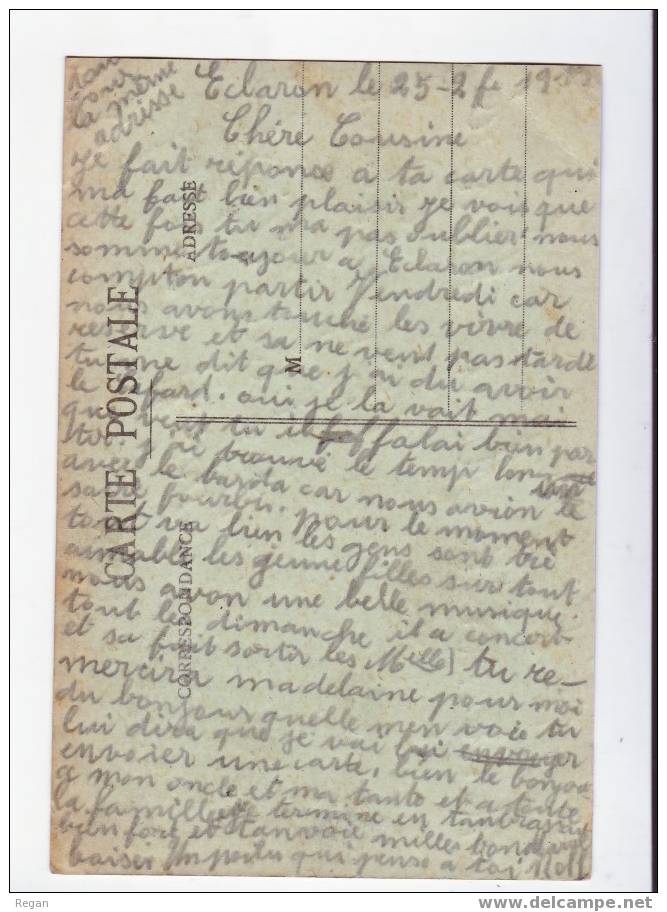 la même
adresse
Eclaron le 25-2
Chére Cousine
Je fait réponce a ta carte qui
ma fait bien plaisir je vois que
cette fois tu ma pas oublier nous
somme toujour a Eclaron nous
compton partir Vendredi car
nous avons touché les vivre de
reserve et sa ne veut pas tardé
tu me dit que j'ai du avoir
le cafard. oui je la voit mai
que veut tu il falai bien par
trouvé le temp long
avec le barda car nous avion le
sac pour le moment
tout va bien les gens sont tré
aimable les jeune filles sur tout
nous avon une belle musique
tout les dimanche il a concert
et sa fait sortir les Melle) tu re-
mercira madelaine pour moi
du bonjour quelle men voie tu
lui dira que je vai lui envoyer
envoier une carte. bien le bonjour
a mon oncle et ma tante et a toute
la famille je termine en tanbrassant
bien fort et tanvoie milles bon
baiser Un poilu qui pense a toi
CARTE POSTALE
CORRESPONDANCE
ADRESSE
M
Regan
www.delcampe.net